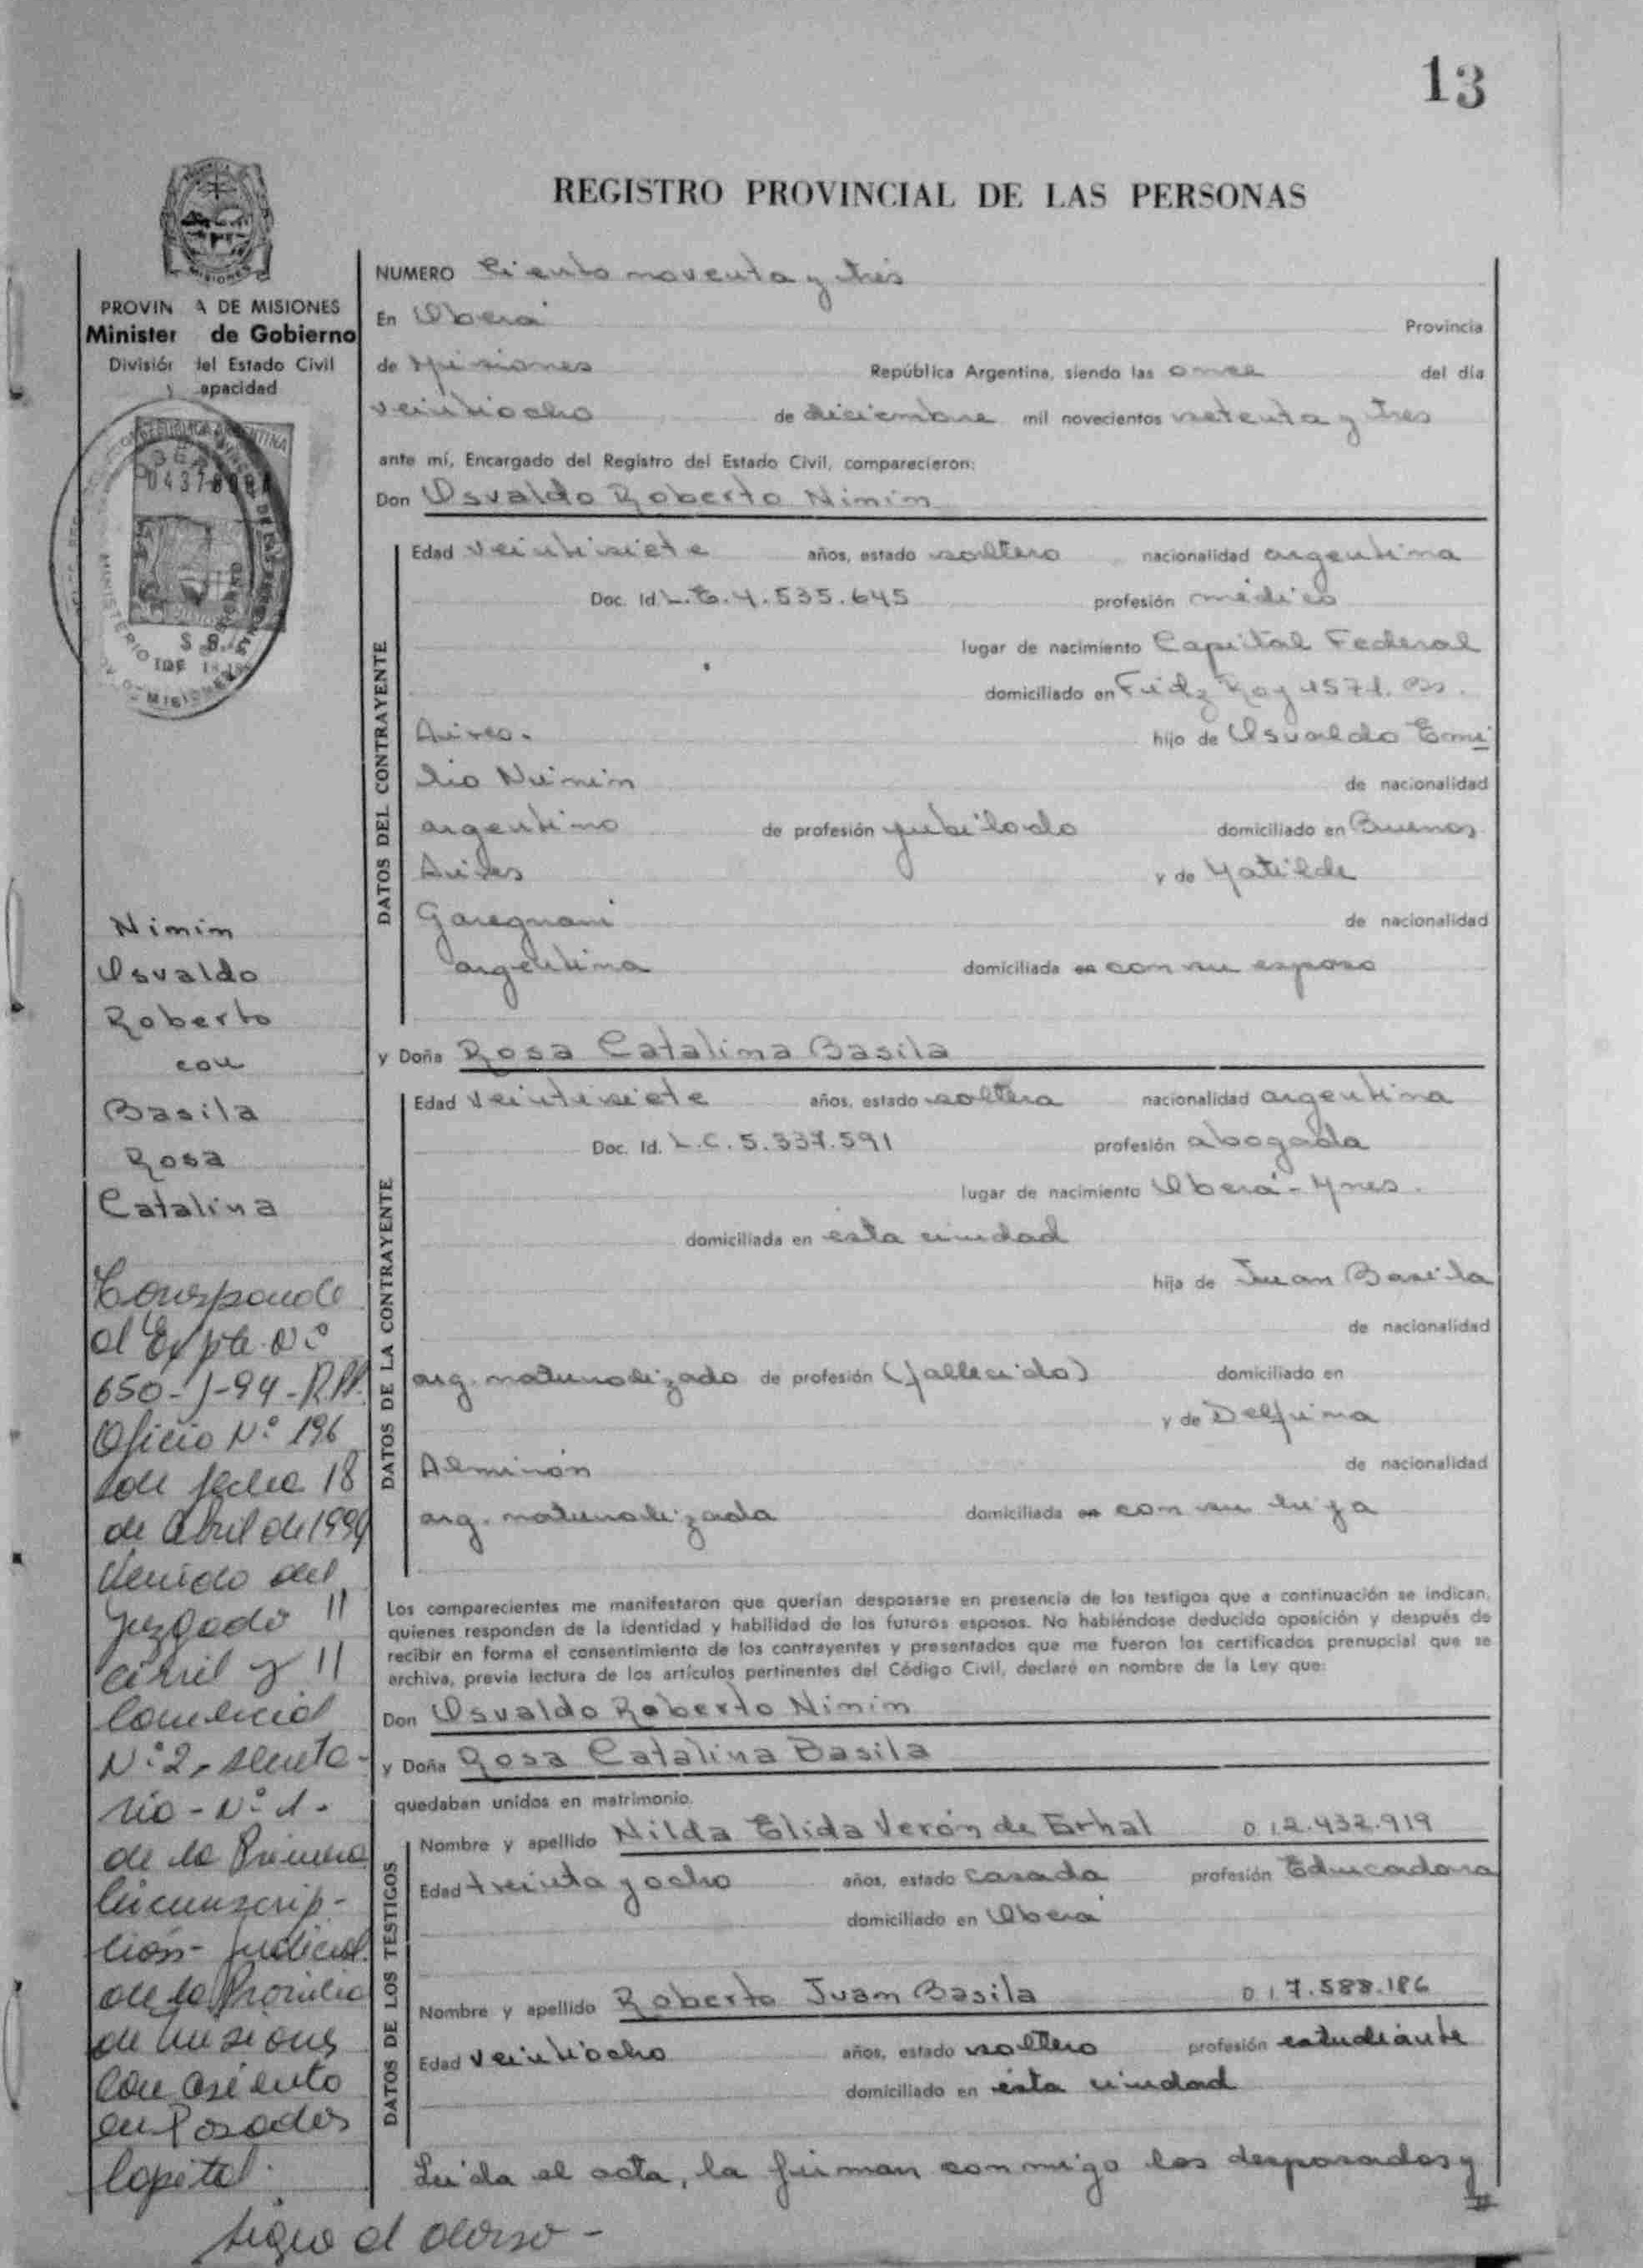 13
REGISTRO PROVINCIAL DE LAS PERSONAS
MISIONES
PROVIN A DE MISIONES
Minister de Gobierno
División del Estado Civil
y apacidad
REPUBLICA ARGENTINA
MINISTERIO
MISIONES
NUMERO Ciento noventa y tres
En Oberá Provincia
de Misiones República Argentina, siendo las once del día
veintiocho de diciembre mil novecientos setenta y tres
ante mí, Encargado del Registro del Estado Civil, comparecieron:
Don Osvaldo Roberto Nimin
DATOS DEL CONTRAYENTE
Edad veintisiete años, estado soltero nacionalidad argentina
Doc. Id. L.E. 4.535.645 profesión médico
lugar de nacimiento Capital Federal
domiciliado en Fidz Roy 1571. Bs.
Aires. hijo de Osvaldo Emi
lio Nimin de nacionalidad
argentino de profesión jubilado domiciliado en Buenos
Aires y de Matilde
Garegnani de nacionalidad
argentina domiciliada en con su esposo
y Doña Rosa Catalina Basila
DATOS DE LA CONTRAYENTE
Edad veintisiete años, estado soltera nacionalidad argentina
Doc. Id. L.C. 5.337.591 profesión abogada
lugar de nacimiento Oberá - Mnes.
domiciliada en esta ciudad
hija de Juan Basila
de nacionalidad
arg. naturalizado de profesión (fallecido) domiciliado en
y de Delfina
Alminón de nacionalidad
arg. naturalizada domiciliada en con su hija
Los comparecientes me manifestaron que querían desposarse en presencia de los testigos que a continuación se indican,
quienes responden de la identidad y habilidad de los futuros esposos. No habiéndose deducido oposición y después de
recibir en forma el consentimiento de los contrayentes y presentados que me fueron los certificados prenupcial que se
archiva, previa lectura de los artículos pertinentes del Código Civil, declaré en nombre de la Ley que:
Don Osvaldo Roberto Nimin
y Doña Rosa Catalina Basila
quedaban unidos en matrimonio.
DATOS DE LOS TESTIGOS
Nombre y apellido Nilda Elida Verón de Erhal D.I. 2.432.919
Edad treinta y ocho años, estado casada profesión Educadora
domiciliado en Oberá
Nombre y apellido Roberto Juan Basila D.I. 7.588.186
Edad veintiocho años, estado soltero profesión estudiante
domiciliado en esta ciudad
Leída el acta, la firman conmigo los desposados y
Nimin
Osvaldo
Roberto
con
Basila
Rosa
Catalina
Corresponde
al Expte. Nº
650-J-94-R.PP.
Oficio Nº 196
de fecha 18
de abril de 1994
Venido del
Juzgado
civil y
Comercial
Nº 2, secreta-
ría - Nº 1 -
de la Primera
Circunscrip-
ción - Judicial
de la Provincia
de Misiones
con asiento
en Posadas
Capital.
sigue al dorso -